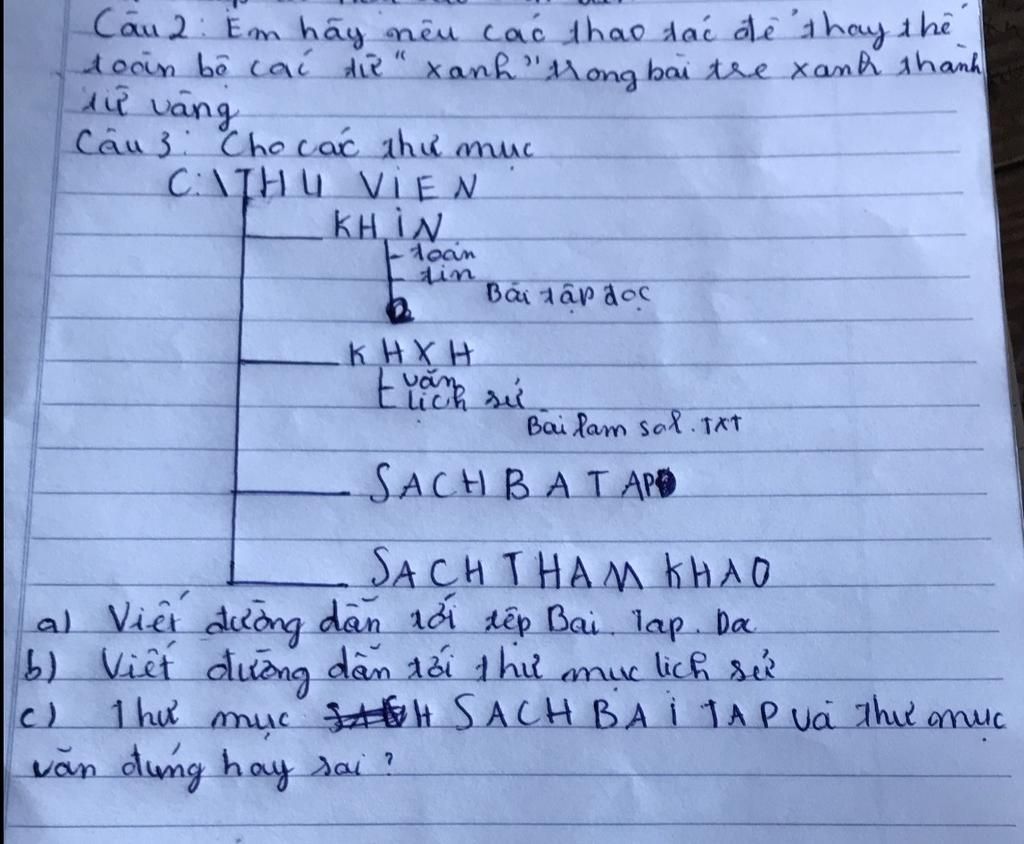 Câu 2: Em hãy nêu các thao tác để thay thế
toàn bộ các từ "xanh" trong bài tre xanh thành
từ vàng
Câu 3: Cho các thư mục
C:\THU VIEN
KHIN
toán
tin
Bài tập đọc
KHXH
văn
lịch sử
Bài lam sol.TXT
SACH BA TAP
SACH THAM KHAO
a) Viết đường dẫn tới tệp Bai. Tap. Da
b) Viết đường dẫn tới thư mục lich sử
c) Thư mục SACH BAI TAP và thư mục
văn đứng hay sai?